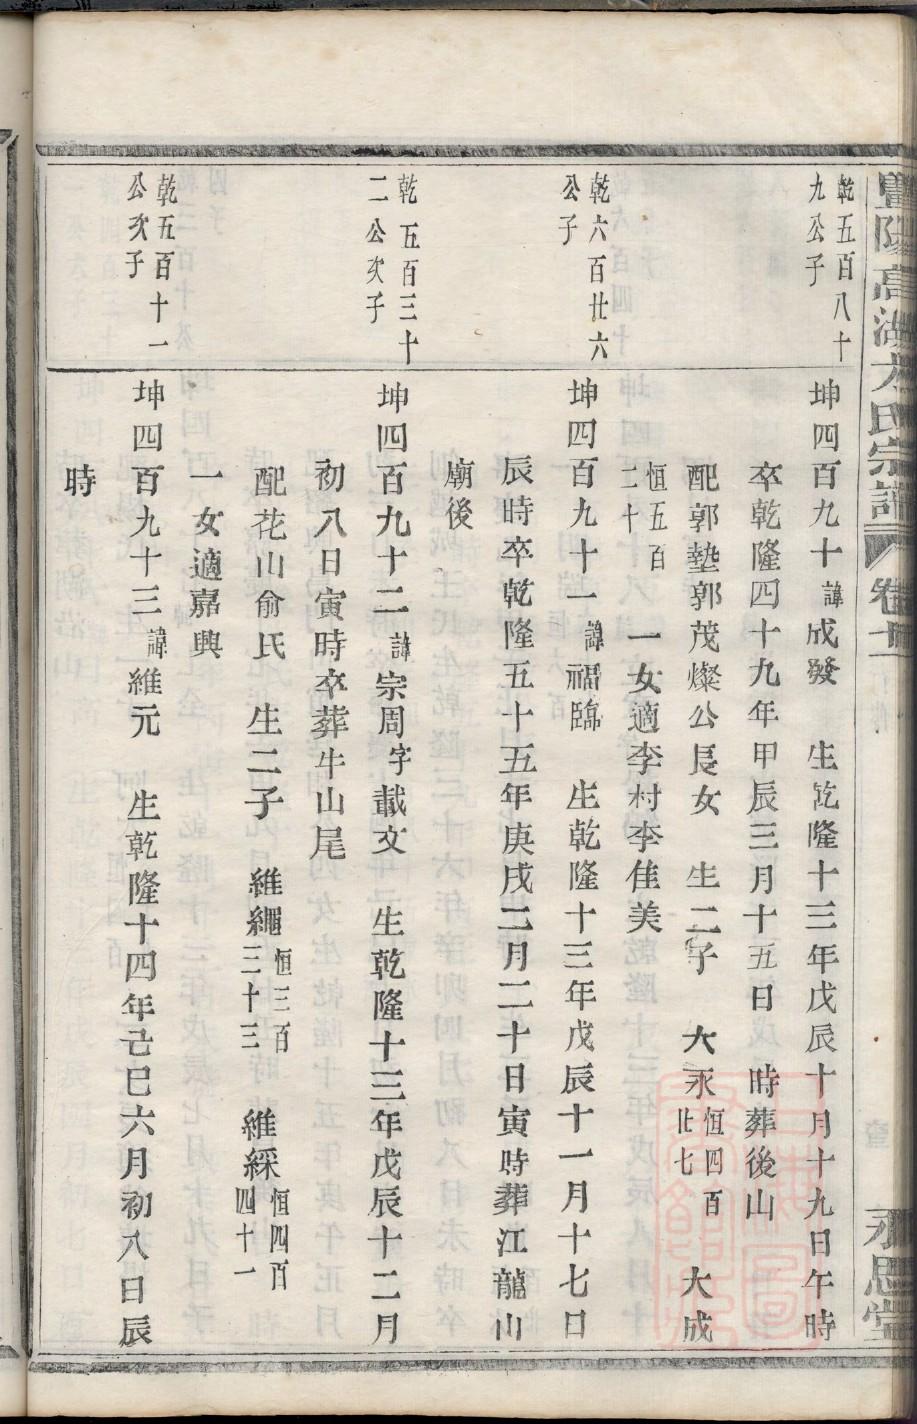 豐陽高湖方氏宗譜 卷十
永思堂
乾五百八十
九公子
坤四百九十諱成發 生乾隆十三年戊辰十月十九日午時
卒乾隆四十九年甲辰三月十五日 時葬後山
配郭墊郭茂燦公長女 生二子 大永恒四百廿七 大成
恒五百二十 一女適李村李佳美
乾六百廿六
公子
坤四百九十一諱福臨 生乾隆十三年戊辰十一月十七日
辰時卒乾隆五十五年庚戌二月二十日寅時葬江龍山
廟後
乾五百三十
二公次子
坤四百九十二諱宗周字載文 生乾隆十三年戊辰十二月
初八日寅時卒葬牛山尾
配花山俞氏 生二子 維繩恒三百三十三 維綵恒四百四十一
一女適嘉興
乾五百十一
公次子
坤四百九十三諱維元 生乾隆十四年己巳六月初八日辰
時